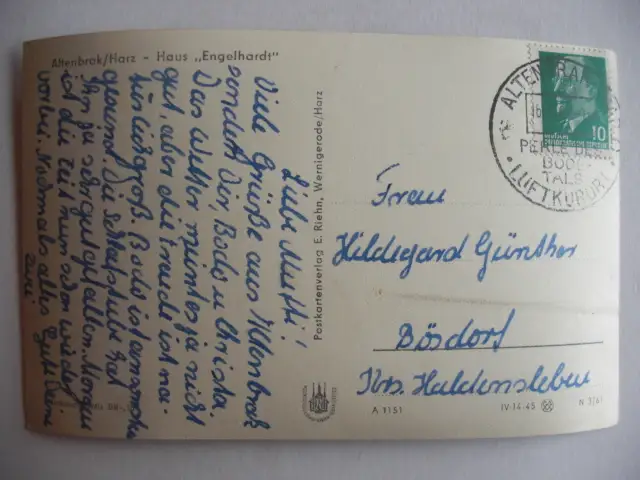 Altenbrak/Harz – Haus „Engelhardt"
Liebe Mutti!
Viele Grüße aus Altenbrak
sendet Dir, Bodo u. Christa.
Das Wetter müßte ja nicht
gut, aber die Freude ist na-
türlich groß. Bodo ist einigermaßen
gesund. Die hat
ihr ja sehr gut gefallen. Morgen
ist die Zeit nun schon wieder
vorbei. Nochmals alles Gute Deine
Postkartenverlag E. Riehn, Wernigerode/Harz
10
ALTENBRAK
PERLE DES
BODE
TALS
LUFTKURORT
Frau
Hildegard Günther
Bösdorf
Krs. Haldensleben
A 1151
IV-14-45